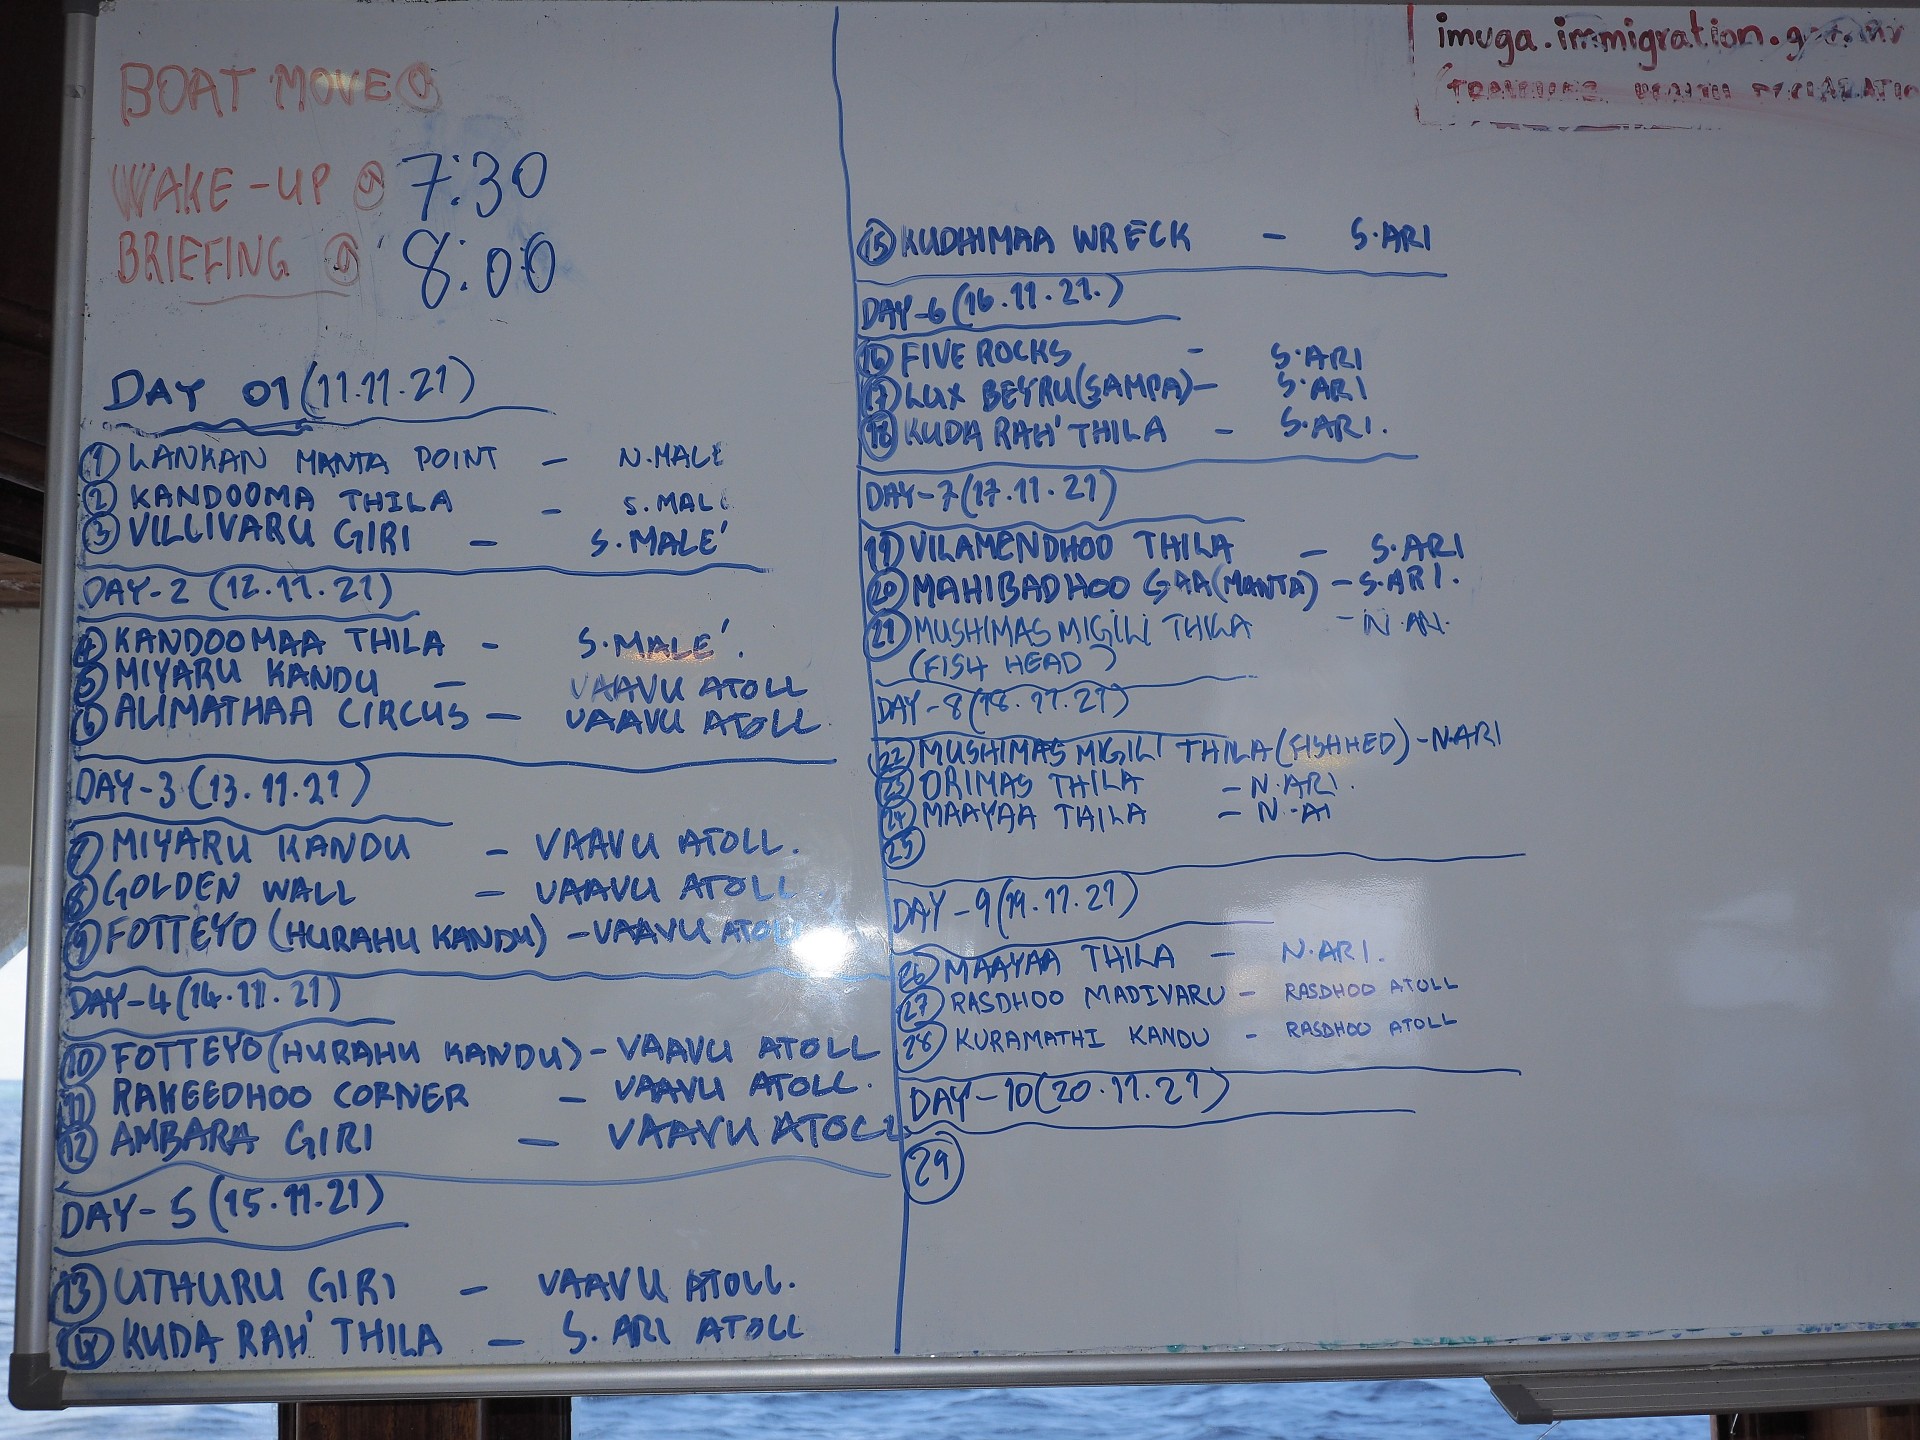 BOAT MOVE @
WAKE-UP @ 7:30
BRIEFING @ 8:00
DAY 01 (11.11.21)
1 LANKAN MANTA POINT - N.MALE
2 KANDOOMA THILA - S.MALE
3 VILLIVARU GIRI - S.MALE'
DAY-2 (12.11.21)
4 KANDOOMAA THILA - S.MALE'.
5 MIYARU KANDU - VAAVU ATOLL
6 ALIMATHAA CIRCUS - VAAVU ATOLL
DAY-3 (13.11.21)
7 MIYARU KANDU - VAAVU ATOLL.
8 GOLDEN WALL - VAAVU ATOLL
9 FOTTEYO (HURAHU KANDU) - VAAVU ATOLL
DAY-4 (14.11.21)
10 FOTTEYO (HURAHU KANDU) - VAAVU ATOLL
11 RAKEEDHOO CORNER - VAAVU ATOLL.
12 AMBARA GIRI - VAAVU ATOLL
DAY-5 (15.11.21)
13 UTHURU GIRI - VAAVU ATOLL.
14 KUDA RAH' THILA - S. ARI ATOLL
15 KUDHIMAA WRECK - S.ARI
DAY-6 (16.11.21.)
16 FIVE ROCKS - S.ARI
17 LUX BEYRU (SAMPA) - S.ARI
18 KUDA RAH' THILA - S.ARI.
DAY-7 (17.11.21)
19 VILAMENDHOO THILA - S.ARI
20 MAHIBADHOO GAA (MANTA) - S.ARI.
21 MUSHIMAS MIGILI THILA - N.ARI.
(FISH HEAD)
DAY-8 (18.11.21)
22 MUSHIMAS MIGILI THILA (FISHHED) - N.ARI
23 ORIMAS THILA - N.ARI.
24 MAAYAA THILA - N.AI
25
DAY-9 (19.11.21)
26 MAAYAA THILA - N.ARI.
27 RASDHOO MADIVARU - RASDHOO ATOLL
28 KURAMATHI KANDU - RASDHOO ATOLL
DAY-10 (20.11.21)
29
imuga.immigration.